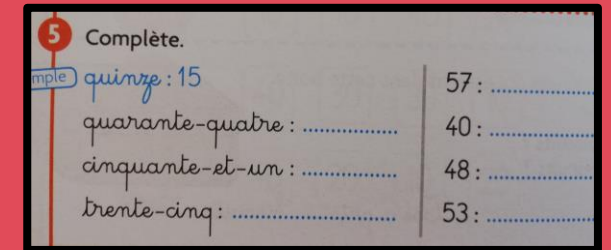 5 Complète.
mple quinze : 15
quarante-quatre : ..................
cinquante-et-un : ..................
trente-cinq : ..............................
57 : ....................
40 : ....................
48 : ....................
53 : ....................